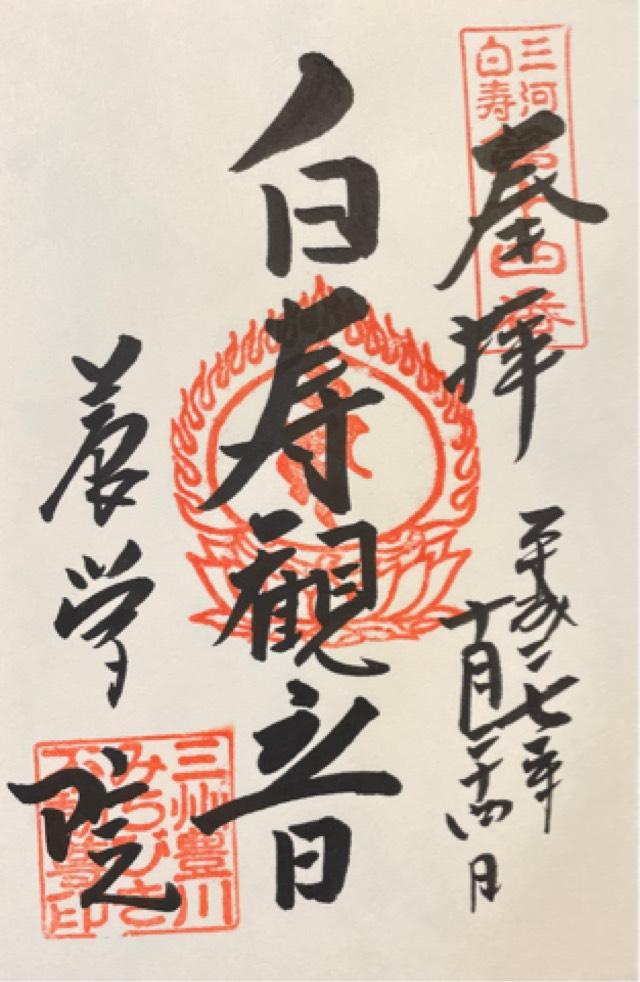 三河
白寿
奉拝
平成二七年
十月二十四日
白寿観音
養学院
三州豊川
みちびき
不動尊印